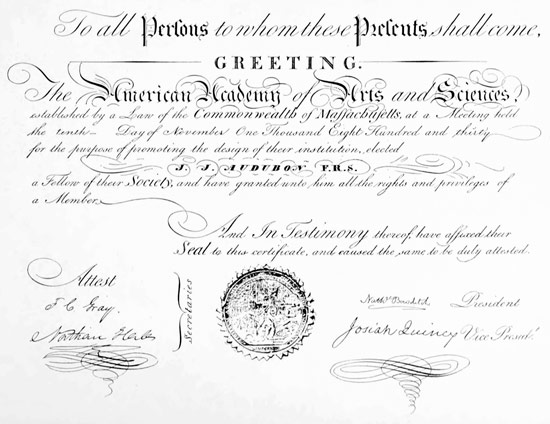 To all Persons to whom these Presents shall come,
GREETING.
The American Academy of Arts and Sciences,
established by a Law of the Commonwealth of Massachusetts, at a Meeting held
the tenth Day of November One Thousand Eight Hundred and thirty
for the purpose of promoting the design of their institution, elected
J. J. AUDUBON F.R.S.
a Fellow of their Society, and have granted unto him all the rights and privileges of
a Member.
And In Testimony thereof, have affixed their
Seal to this certificate, and caused the same to be duly attested.
Attest
F. C. Gray.
Nathan Hale
Secretaries
Nathl Bowditch President
Josiah Quincy Vice Presidt